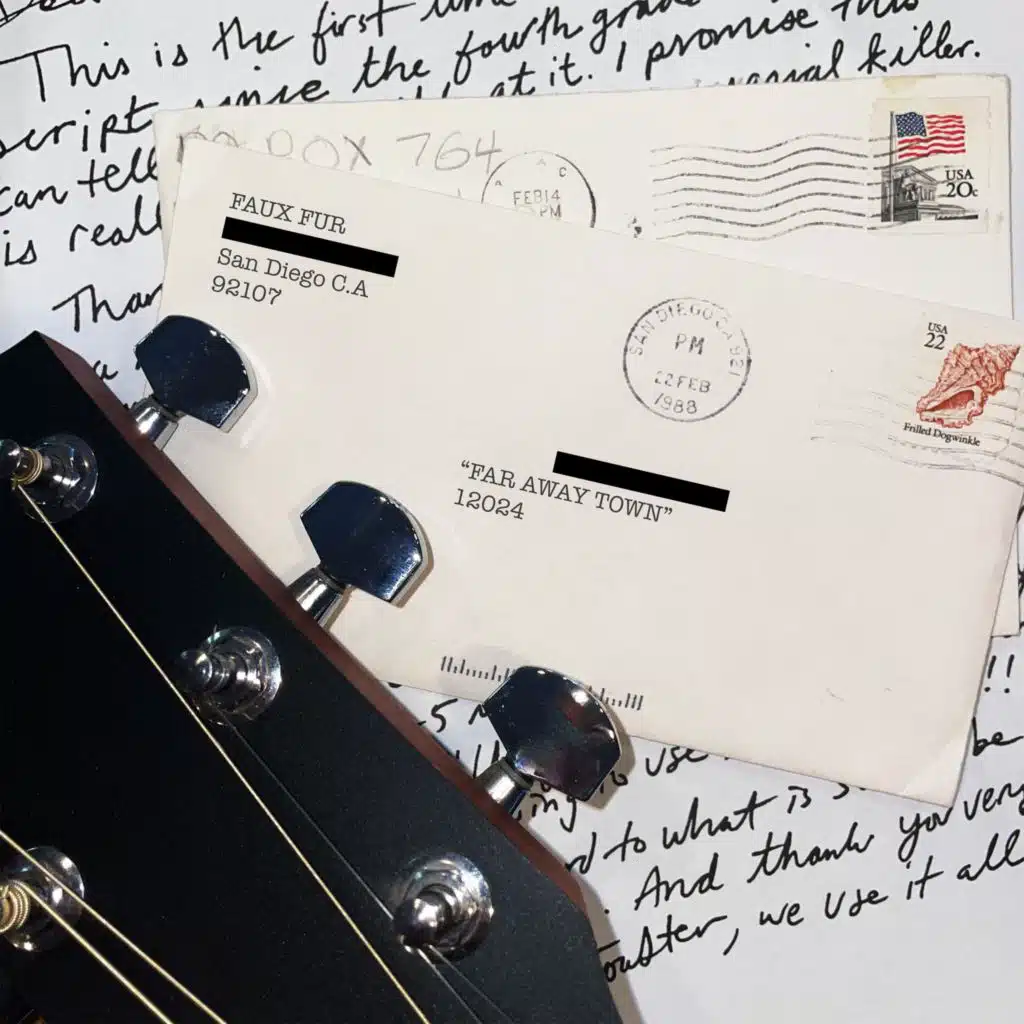 This is the first
script since the fourth grade
at it. I promise this
serial killer.
can tell
is reall
Than
a
BOX 764
FEB 14
PM
USA
20c
FAUX FUR
San Diego C.A
92107
SAN DIEGO CA 921
PM
22 FEB
1988
USA
22
Frilled Dogwinkle
"FAR AWAY TOWN"
12024
!!
-5
to use
be
rd to what is
. And thank you very
ouster, we use it all